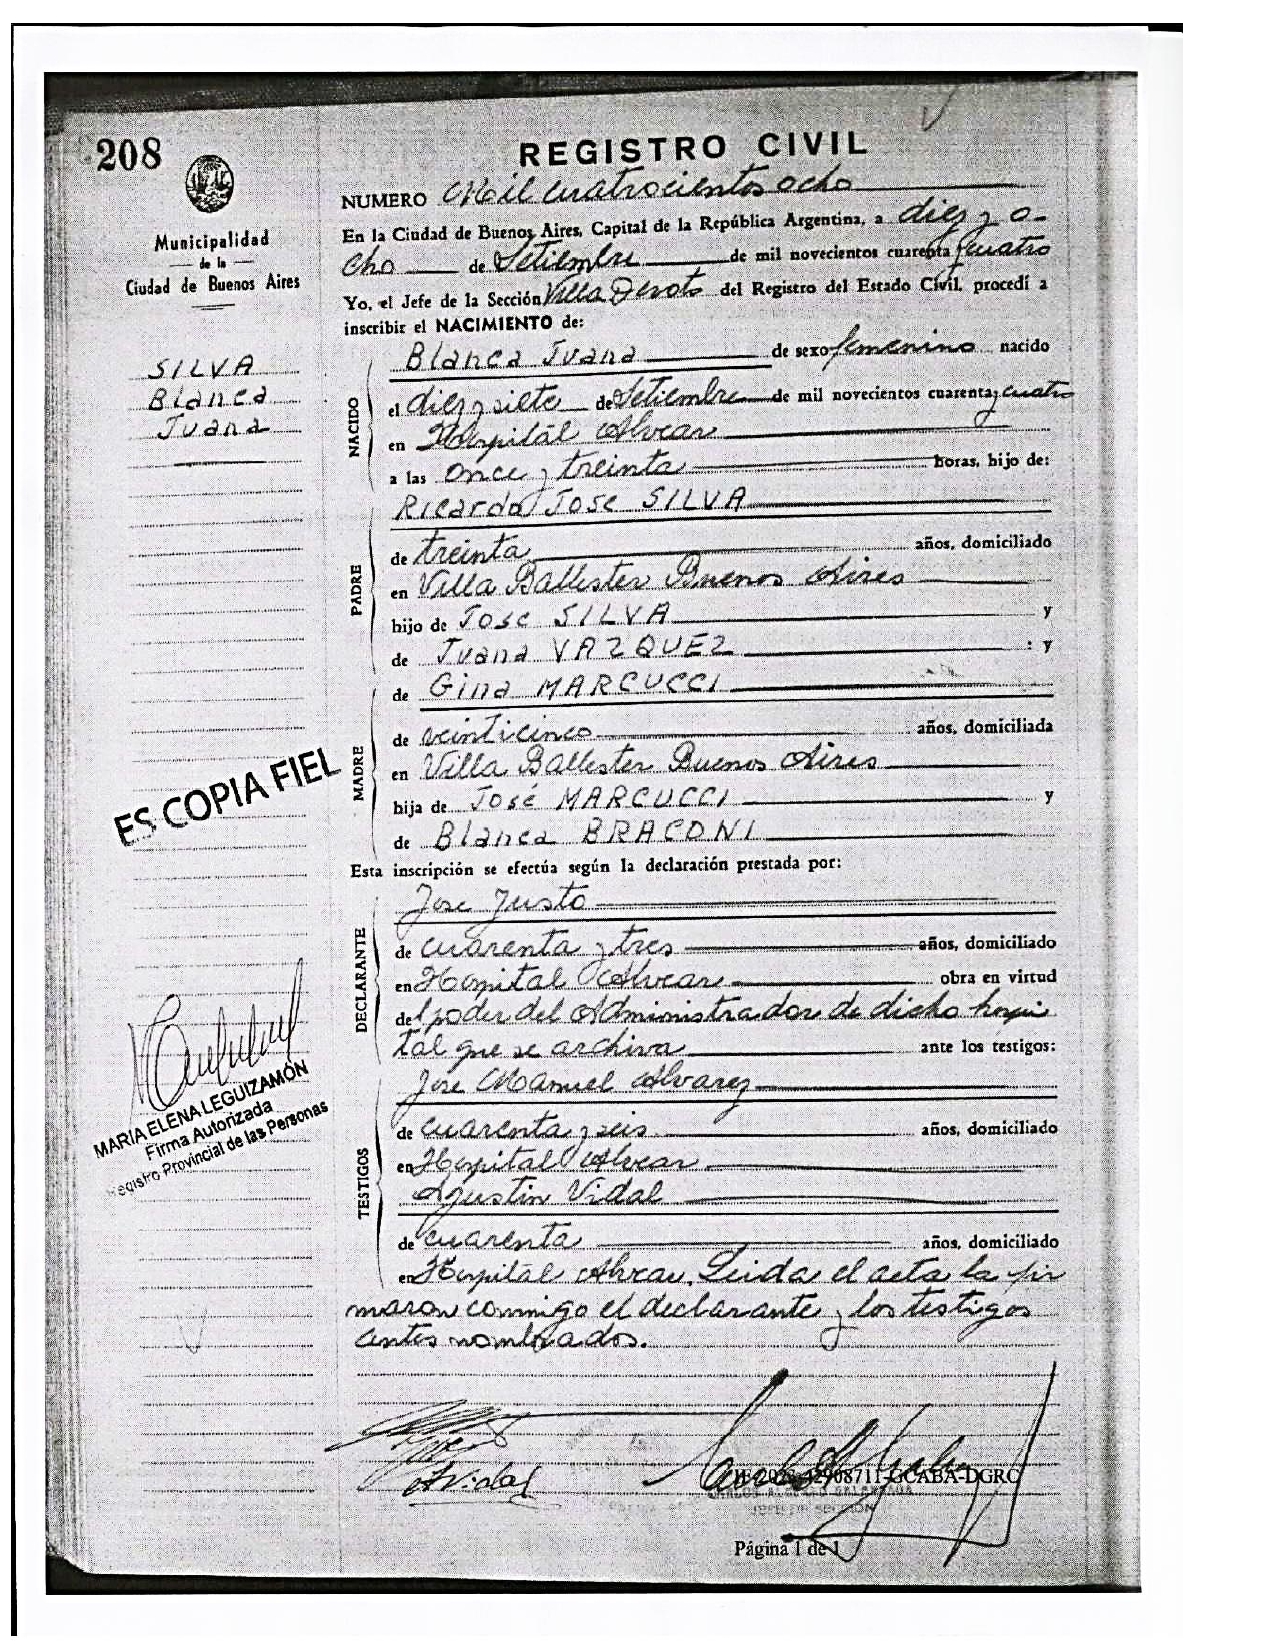 208
REGISTRO CIVIL
NUMERO Mil cuatrocientos ocho
Municipalidad
de la
Ciudad de Buenos Aires
En la Ciudad de Buenos Aires, Capital de la República Argentina, a diez y o-
cho de Setiembre de mil novecientos cuarenta y cuatro
Yo, el Jefe de la Sección Villa Devoto del Registro del Estado Civil, procedí a
inscribir el NACIMIENTO de:
SILVA
Blanca
Juana
NACIDO
Blanca Juana de sexo femenino nacido
el diez y siete de Setiembre de mil novecientos cuarenta y cuatro
en Hospital Alvear
a las once y treinta horas, hijo de:
Ricardo Jose SILVA
PADRE
de treinta años, domiciliado
en Villa Ballester Buenos Aires
hijo de Jose SILVA y
de Juana VAZQUEZ : y
de Gina MARCUCCI
MADRE
de veinticinco años, domiciliada
en Villa Ballester Buenos Aires
hija de José MARCUCCI y
de Blanca BRACONI
ES COPIA FIEL
Esta inscripción se efectúa según la declaración prestada por:
Jose Justo
DECLARANTE
de cuarenta y tres años, domiciliado
en Hospital Alvear obra en virtud
del poder del Administrador de dicho hospi
tal que se archiva ante los testigos:
Jose Manuel Alvarez
TESTIGOS
de cuarenta y seis años, domiciliado
en Hospital Alvear
Agustin Vidal
de cuarenta años, domiciliado
en Hospital Alvear. Leida el acta la fir
maron conmigo el declarante y los testigos
antes nombrados.
MARIA ELENA LEGUIZAMÓN
Firma Autorizada
Registro Provincial de las Personas
A Vidal
42908711-GCABA-DGRC
JEFE DE SECCIÓN
Página 1 de 1